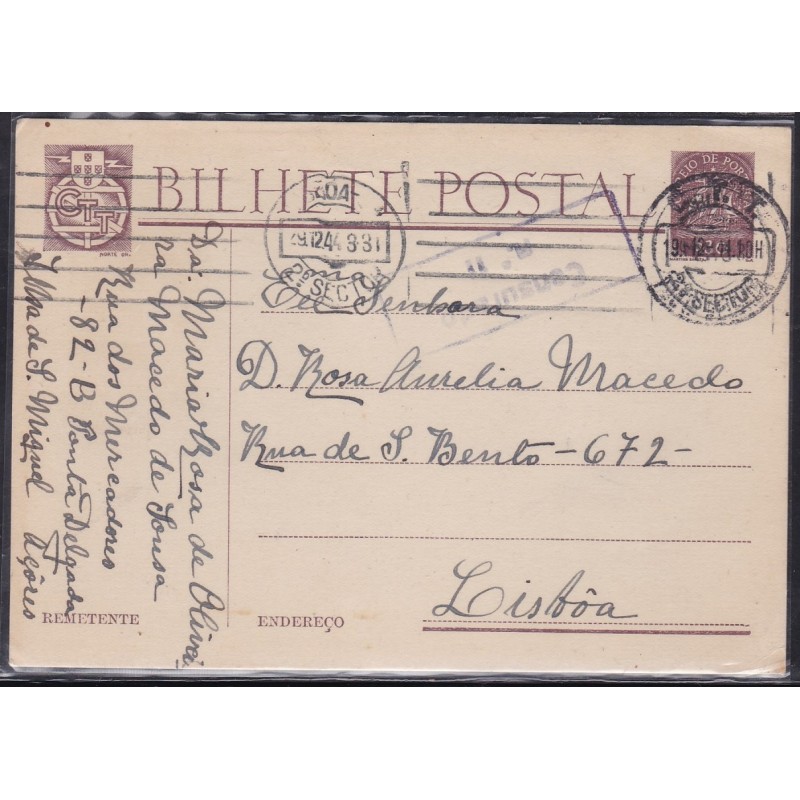 BILHETE POSTAL
CTT
CORREIO DE POR
LISBOA
29.12.44 8-31
2º SECTOR
19.12.44
2ª SECÇÃO
Senhora
D. Rosa Aurelia Macedo
Rua de S. Bento - 672 -
Lisbôa
ENDEREÇO
Da: Maria Rosa de Olivei
ra Macedo de Sousa
Rua dos Mercadores
- 82-B Ponta Delgada
Ilha de S. Miguel Açôres
REMETENTE